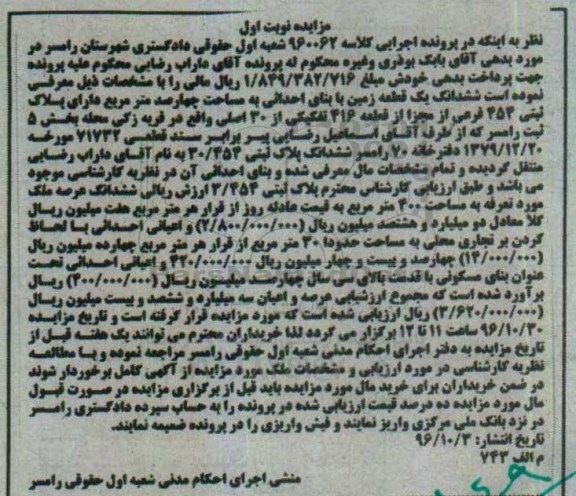 مزایده نوبت اول
نظر به اینکه در پرونده اجرایی کلاسه ۹۶۰۰۶۲ شعبه اول حقوقی دادگستری شهرستان رامسر در
مورد بدهی آقای بابک بوذری وغیره محکوم له پرونده آقای داراب رضایی محکوم علیه پرونده
جهت پرداخت بدهی خودش مبلغ ۱/۸۴۹/۳۸۲/۷۱۶ ریال مالی را با مشخصات ذیل معرفی
نموده است ششدانگ یک قطعه زمین با بنای احداثی به مساحت چهارصد متر مربع دارای پلاک
ثبتی ۴۵۴ فرعی از مجزا از قطعه ۴۱۶ تفکیکی از ۳۰ اصلی واقع در قریه زکی محله بخش ۵
ثبت رامسر که از طرف آقای اسماعیل رضایی پیر برابر سند قطعی ۷۱۷۳۲ مورخه
۱۳۷۹/۱۲/۲۰ دفترخانه ۷۰ رامسر ششدانگ پلاک ثبتی ۳۰/۴۵۴ به نام آقای داراب رضایی
منتقل گردیده و تمام مشخصات مال معرفی شده و بنای احداثی آن در نظریه کارشناسی موجود
می باشد و طبق ارزیابی کارشناس محترم پلاک ثبتی ۳/۴۵۴ ارزش ریالی ششدانگ عرصه ملک
مورد تعرفه به مساحت ۴۰۰ متر مربع به قیمت عادله روز از قرار هر متر مربع هفت میلیون ریال
کلا معادل دو میلیارد و هشتصد میلیون ریال (۲/۸۰۰/۰۰۰/۰۰۰) و اعیانی احداثی با لحاظ
کردن بر تجاری محلی به مساحت حدودا ۳۰ متر مربع از قرار هر متر مربع چهارده میلیون ریال
(۱۴/۰۰۰/۰۰۰) چهارصد و بیست و چهار میلیون ریال ۴۲۰/۰۰۰/۰۰۰ و اعیانی احداثی تحت
عنوان بنای مسکونی با قدمت بالای سی سال چهارصد میلیون ریال (۴۰۰/۰۰۰/۰۰۰) ریال
برآورد شده است که مجموع ارزشیابی عرصه و اعیان سه میلیارد و ششصد و بیست میلیون ریال
(۳/۶۲۰/۰۰۰/۰۰۰) ریال ارزیابی شده است که مورد مزایده قرار گرفته است و تاریخ مزایده
۹۶/۱۰/۳۰ ساعت ۱۱ تا ۱۲ برگزار می گردد لذا خریداران محترم می توانند یک هفته قبل از
تاریخ مزایده به دفتر اجرای احکام مدنی شعبه اول حقوقی رامسر مراجعه نموده و با مطالعه
نظریه کارشناسی در مورد ارزیابی و مشخصات ملک مورد مزایده از آگهی کامل برخوردار شوند
در ضمن خریداران برای خرید مال مورد مزایده باید قبل از برگزاری مزایده در صورت قبول
مال مورد مزایده ده درصد قیمت ارزیابی شده در پرونده را به حساب سپرده دادگستری رامسر
در نزد بانک ملی مرکزی واریز نمایند و فیش واریزی را در پرونده ضمیمه نمایند.
تاریخ انتشار: ۹۶/۱۰/۳
م الف ۷۴۳
منشی اجرای احکام مدنی شعبه اول حقوقی رامسر